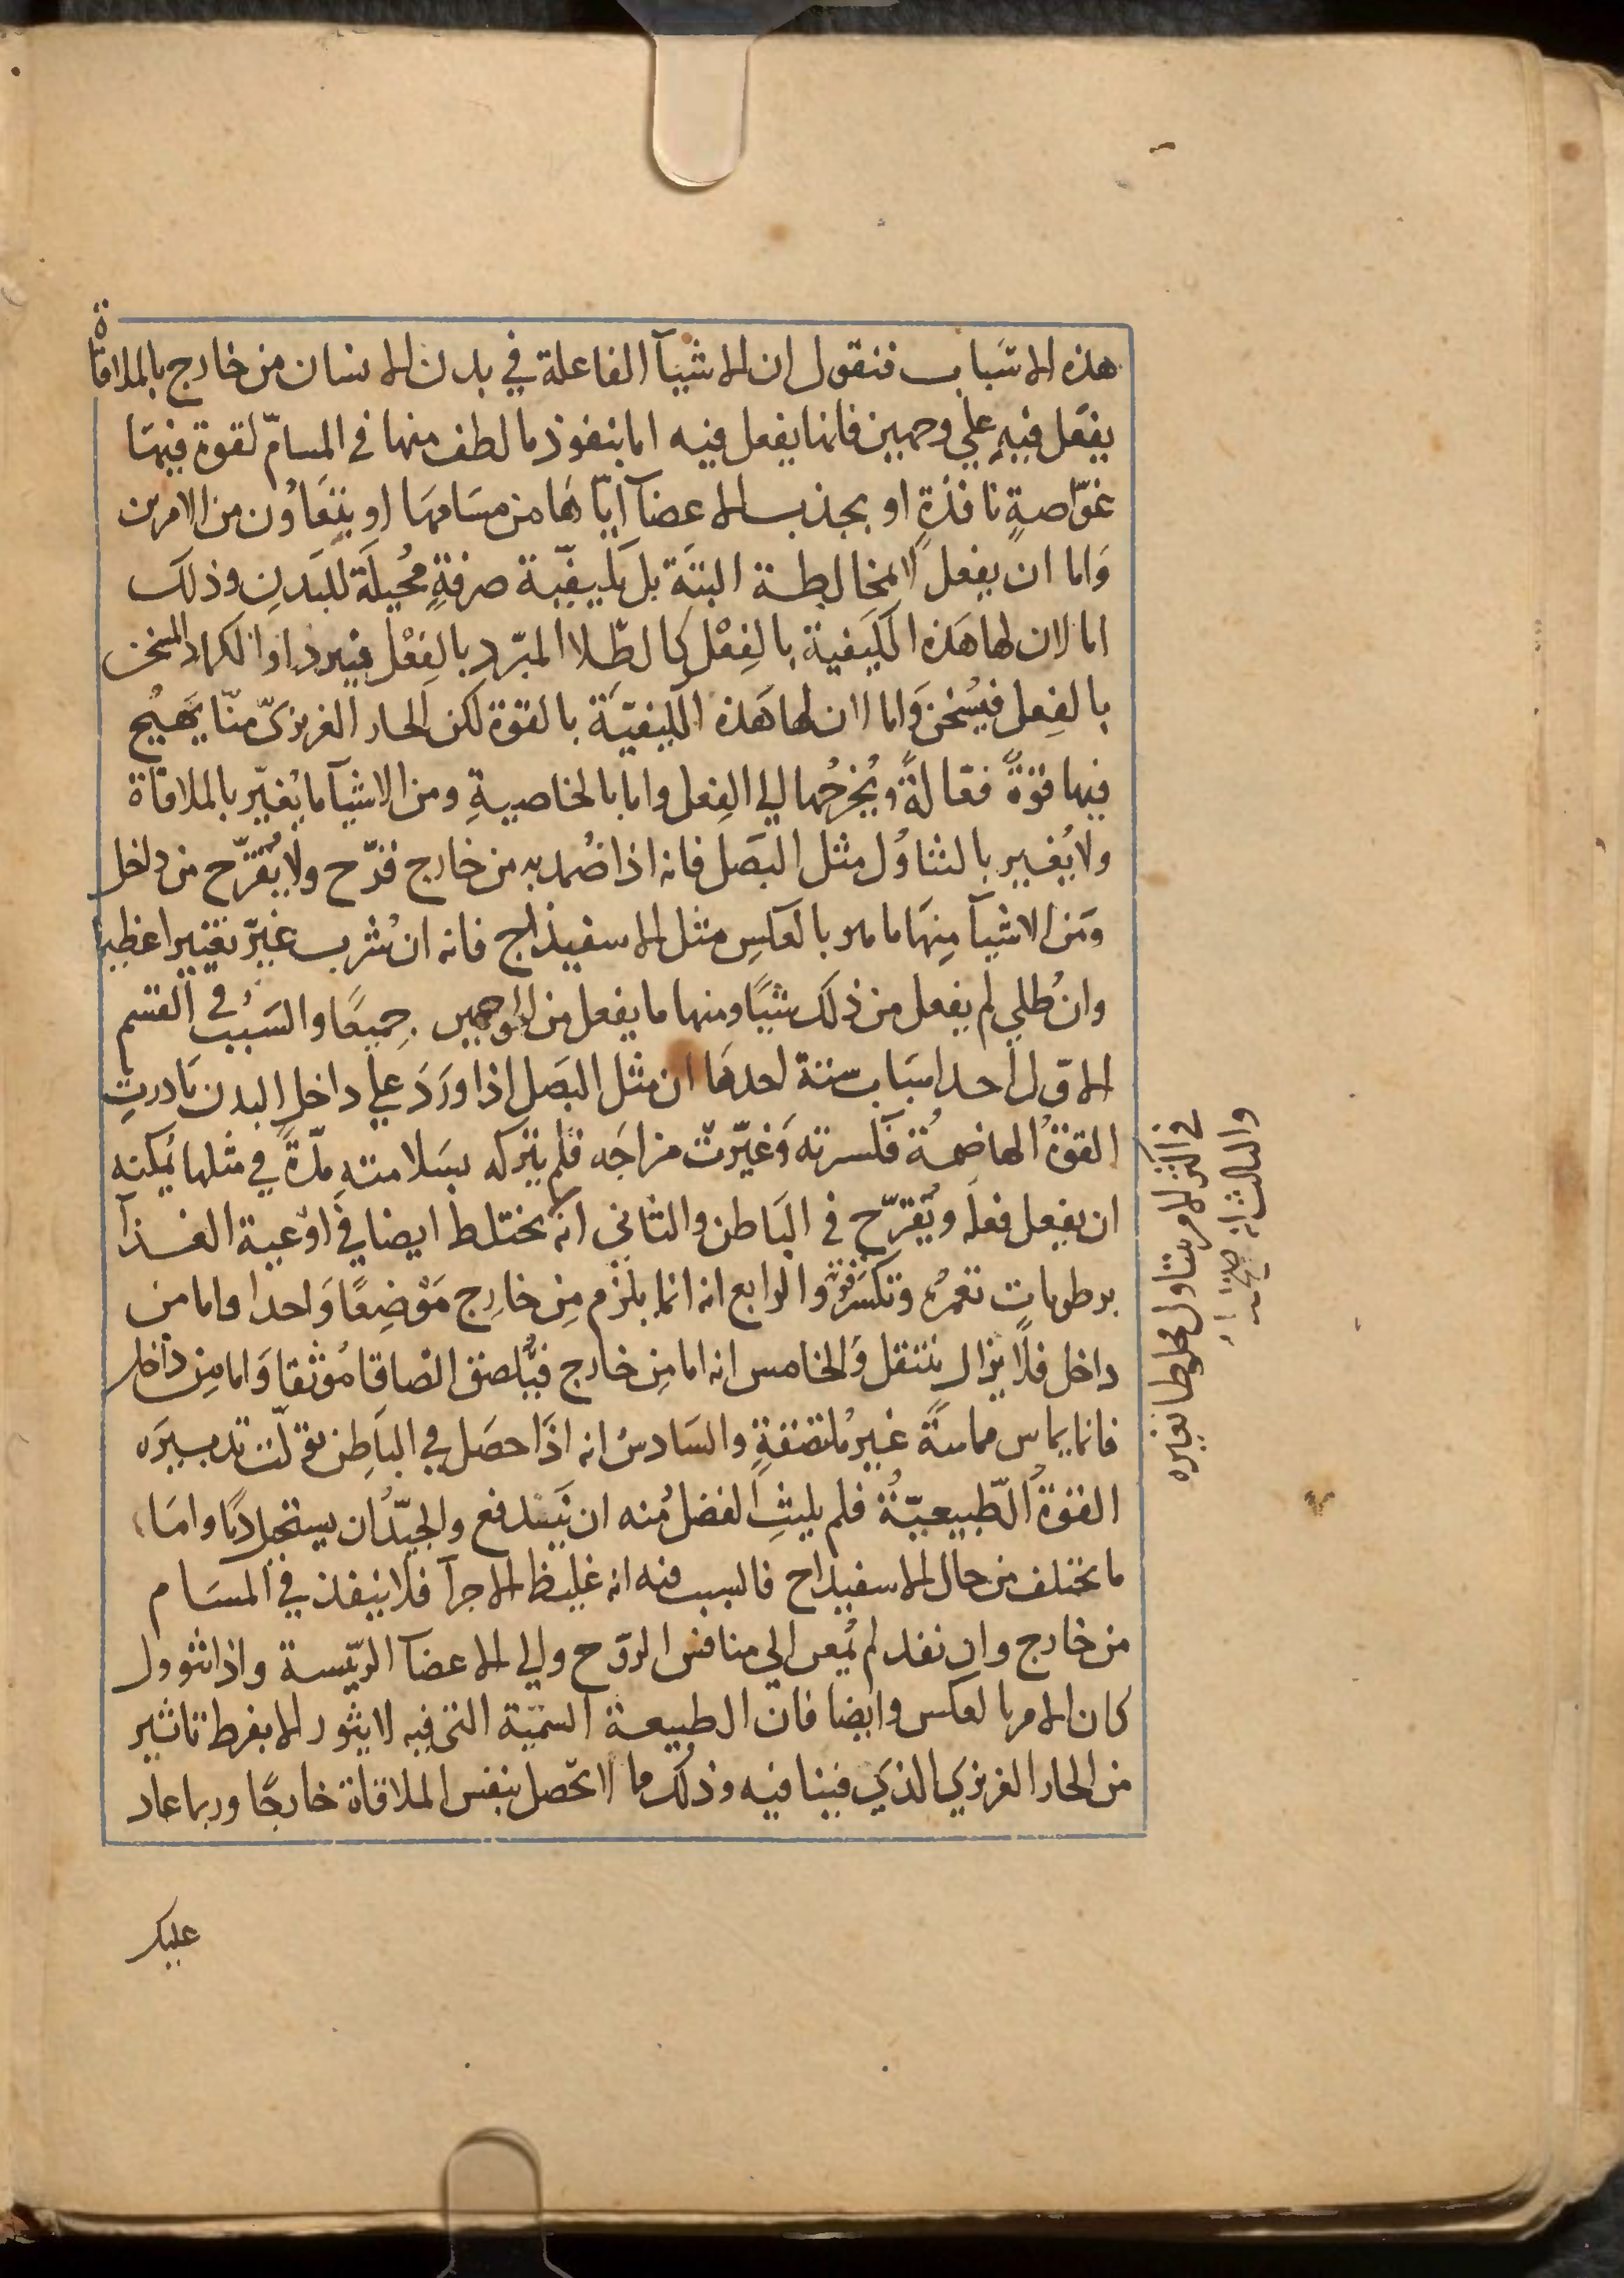 هذه الاسباب فنقول ان الاشيآ الفاعلة في بدن الانسان من خارج بالملاقاة
يفعل فيه علي وجهين فانها يفعل فيه اما بنفوذ ما لطف منها في المسامّ لقوة فيها
غوّاصةٍ نافذةٍ او بجذب الاعضآ ايّاها من مسامها او بتعاون من الامرين
واما ان يفعل لا بمخالطة البتة بل بكيفيّة صرفةٍ مُحيلة للبدن وذلك
اما لان لها هذه الكيفية بالفعل كالطلا المبرّد بالفعل فيبرد او الكماد المسخن
بالفعل فيسخن واما ان لها هذه الكيفيّة بالقوة لكن الحار الغريزيّ منّا يهيج
فيها قوّةً فعّالةً ويُخرجُها الي الفعل واما بالخاصيةِ ومن الاشيآ ما يُغيّر بالملاقاة
ولا يُغير بالتناوُل مثل البصل فانه اذا ضُمد به من خارج قرّح ولا يُقرّح من داخل
ومن الاشيآ منها ما هو بالعكس مثل الاسفيذاج فانه ان شُرب غيّر تغييرا عظيما
وان طُلي لم يفعل من ذلك شيًا ومنها ما يفعل من الوجهين جميعًا والسبب في القسم
الاوّل احد اسباب ستة احدها ان مثل البصل اذا ورد علي داخل البدن بادرت
القوةُ الهاضمةُ فكسرته وغيّرت مزاجه فلم يتركه بسلامتهِ مدّةً في مثلها يُمكنه
ان يفعل فعله ويُقرّح في الباطن والثاني انه يختلط ايضا في اوعية الغذآ
برطوبات تغمرُه وتكسر قوته والرابع انه انما يلزم من خارج موْضِعًا واحدا واما من
داخل فلا يزال ينتقل والخامس انه اما من خارج فيُلصق الصاقا مُوثقا واما من داخل
فانما يماس مماسةً غير ملتصقةٍ والسادسُ انه اذا حصل في الباطن تولّت تدبيره
القوةُ الطبيعيّةُ فلم يلبثِ الفضلُ منه ان يندفع والجيّدُ ان يستحيل دمًا واما
ما يختلف من حال الاسفيداح فالسبب فيه انه غليظ الاجزآ فلا ينفذ في المسام
من خارج وان نفد لم يُمعن الي منافس الروّح والي الاعضآ الرئيسة واذا تنوول
كان الامر بالعكس وايضا فان الطبيعة السمّية التي فيه لا يثور الا بفرط تاثير
من الحار الغريزي الذي فينا فيه وذلك ما لا يحصل بنفس الملاقاة خارجًا وربما عاد
في اكثر الامر يتناول مخلوطا بغيره
والثالث انه
عليك